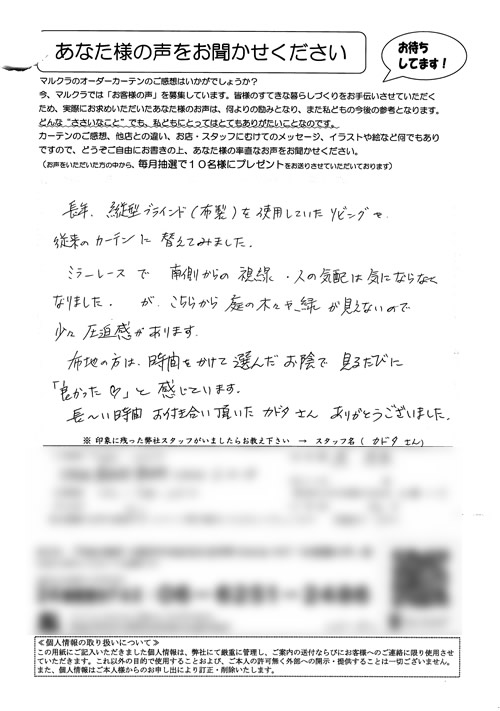 あなた様の声をお聞かせください
お待ち
してます！
マルクラのオーダーカーテンのご感想はいかがでしょうか？
今、マルクラでは「お客様の声」を募集しています。皆様のすてきな暮らしづくりをお手伝いさせていただく
ため、実際にお求めいただいたあなた様のお声は、何よりの励みとなり、また私どもの今後の参考となります。
どんな“ささいなこと”でも、私どもにとってはとてもありがたいことなのです。
カーテンのご感想、他店との違い、お店・スタッフにむけてのメッセージ、イラストや絵など何でもあり
ですので、どうぞご自由にお書きの上、あなた様の率直なお声をお聞かせください。
（お声をいただいた方の中から、毎月抽選で１０名様にプレゼントをお送りさせていただいております）
長年、縦型ブラインド（布製）を使用していたリビングを
従来のカーテンに替えてみました。
ミラーレースで 南側からの視線・人の気配は気にならなく
なりました。 が、こちらから庭の木々や緑が見えないので
少々圧迫感があります。
布地の方は、時間をかけて選んだお陰で見るたびに
「良かった♡」と感じています。
長〜い時間お付き合い頂いたカドタさん ありがとうございました。
※ 印象に残った弊社スタッフがいましたらお教え下さい → スタッフ名（ カドタ さん）
06-6251-2486
≪個人情報の取り扱いについて≫
この用紙にご記入いただきました個人情報は、弊社にて厳重に管理し、ご案内の送付ならびにお客様へのご連絡に限り使用させ
ていただきます。これ以外の目的で使用することおよび、ご本人の許可無く外部への開示・提供することは一切ございません。
また、個人情報はご本人様からのお申し出により訂正・削除いたします。